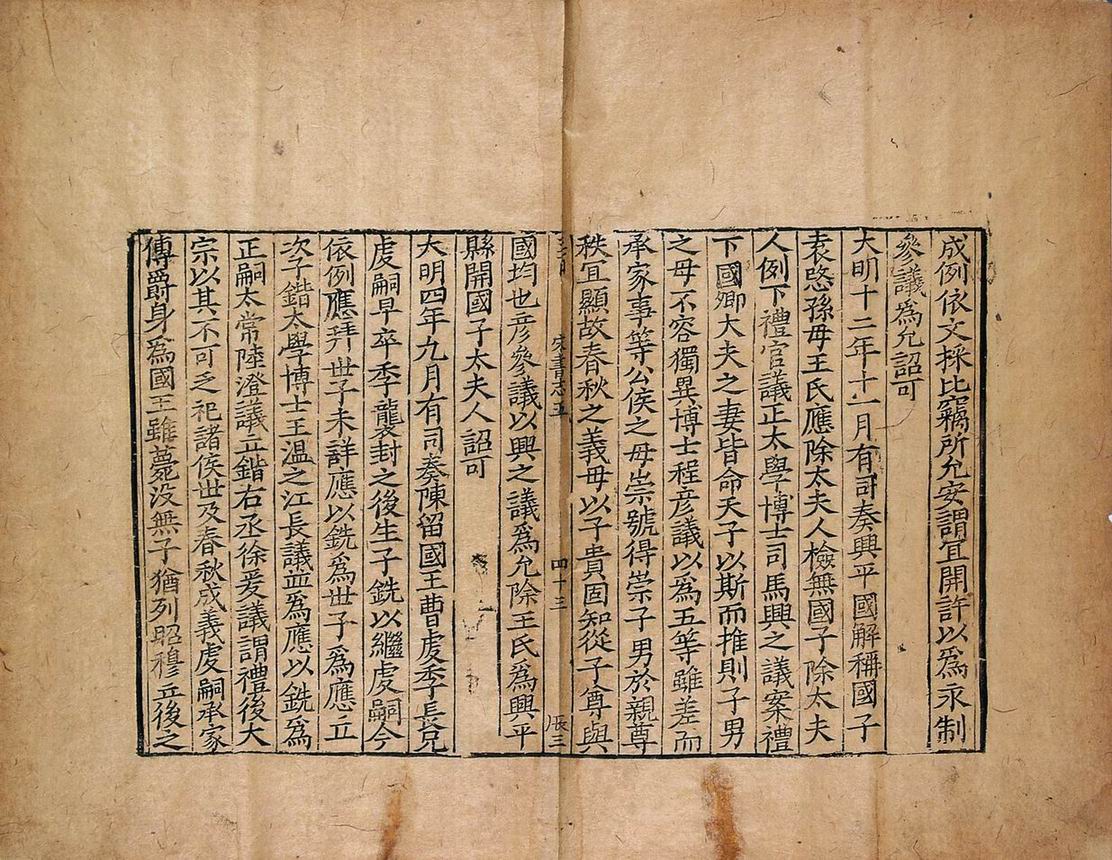 成例依文採比竊所允安謂宜開許以為永制
參議為允詔可
大明十二年十一月有司奏興平國解稱國子
袁愍孫母王氏應除太夫人檢無國子除太夫
人例下禮官議正太學博士司馬興之議案禮
下國卿大夫之妻皆命天子以斯而推則子男
之母不容獨異博士程彦議以為五等雖差而
承家事等公侯之母崇號得崇子男於親尊
秩宜顯故春秋之義母以子貴固知從子尊與
國均也彦參議以興之議為允除王氏為興平
縣開國子太夫人詔可
宋書志五
四十三
大明四年九月有司奏陳留國王曹虔季長兄
虔嗣早卒季襲封之後生子銑以繼虔嗣今
依例應拜世子未詳應以銑為世子為應立
次子鍇太學博士王温之江長議並為應以銑為
正嗣太常陸澄議立鍇右丞徐爰議謂禮後大
宗以其不可乏祀諸侯世及春秋成義虔嗣承家
傳爵身為國王雖薨没無子猶列昭穆立後之